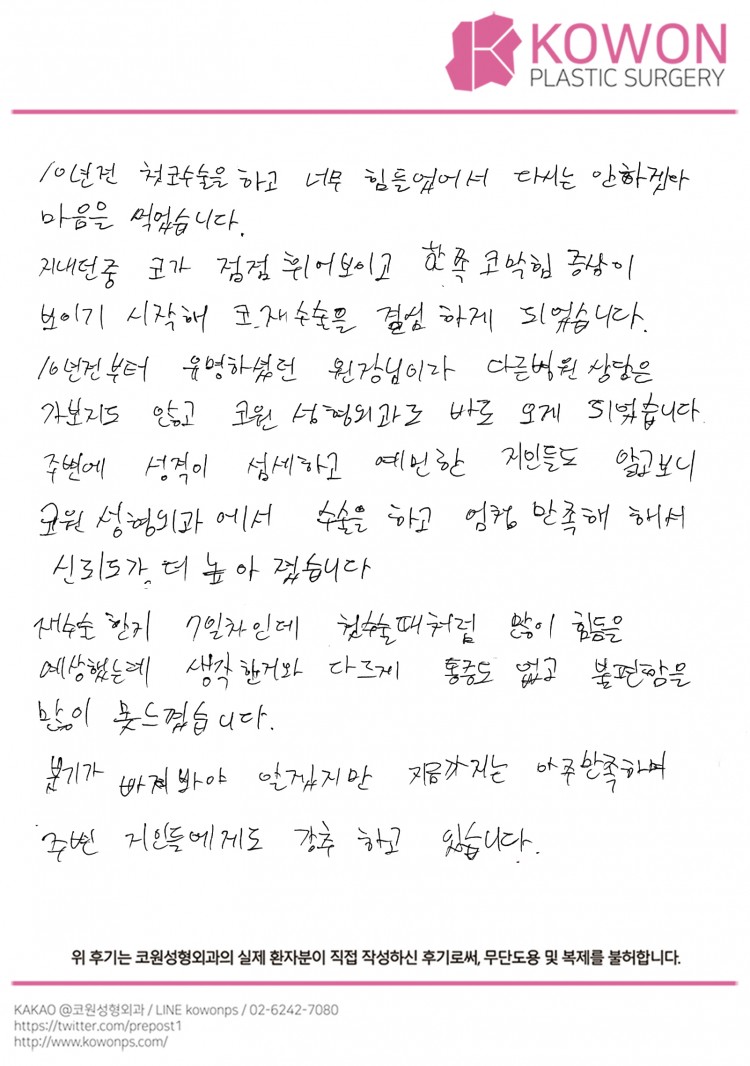 KOWON
PLASTIC SURGERY
10년전 첫코수술을 하고 너무 힘들었어서 다시는 안하겠다
마음을 먹었습니다.
지내던중 코가 점점 휘어보이고 한쪽 코막힘 증상이
보이기 시작해 코재수술을 결심 하게 되었습니다.
10년전부터 유명하셨던 원장님이라 다른병원 상담은
가보지도 않고 코원 성형외과로 바로 오게 되었습니다.
주변에 성격이 섬세하고 예민한 지인들도 알고보니
코원 성형외과 에서 수술을 하고 엄청 만족해 해서
신뢰도가 더 높아 졌습니다
재수술 한지 7일차인데 첫수술때처럼 많이 힘듦을
예상했는데 생각한거와 다르게 통증도 없고 불편함을
많이 못느꼈습니다.
붓기가 빠져봐야 알겠지만 지금까지는 아주만족하며
주변 지인들에게도 강추 하고 있습니다.
위 후기는 코원성형외과의 실제 환자분이 직접 작성하신 후기로써, 무단도용 및 복제를 불허합니다.
KAKAO @코원성형외과 / LINE kowonps / 02-6242-7080
https://twitter.com/prepost1
http://www.kowonps.com/